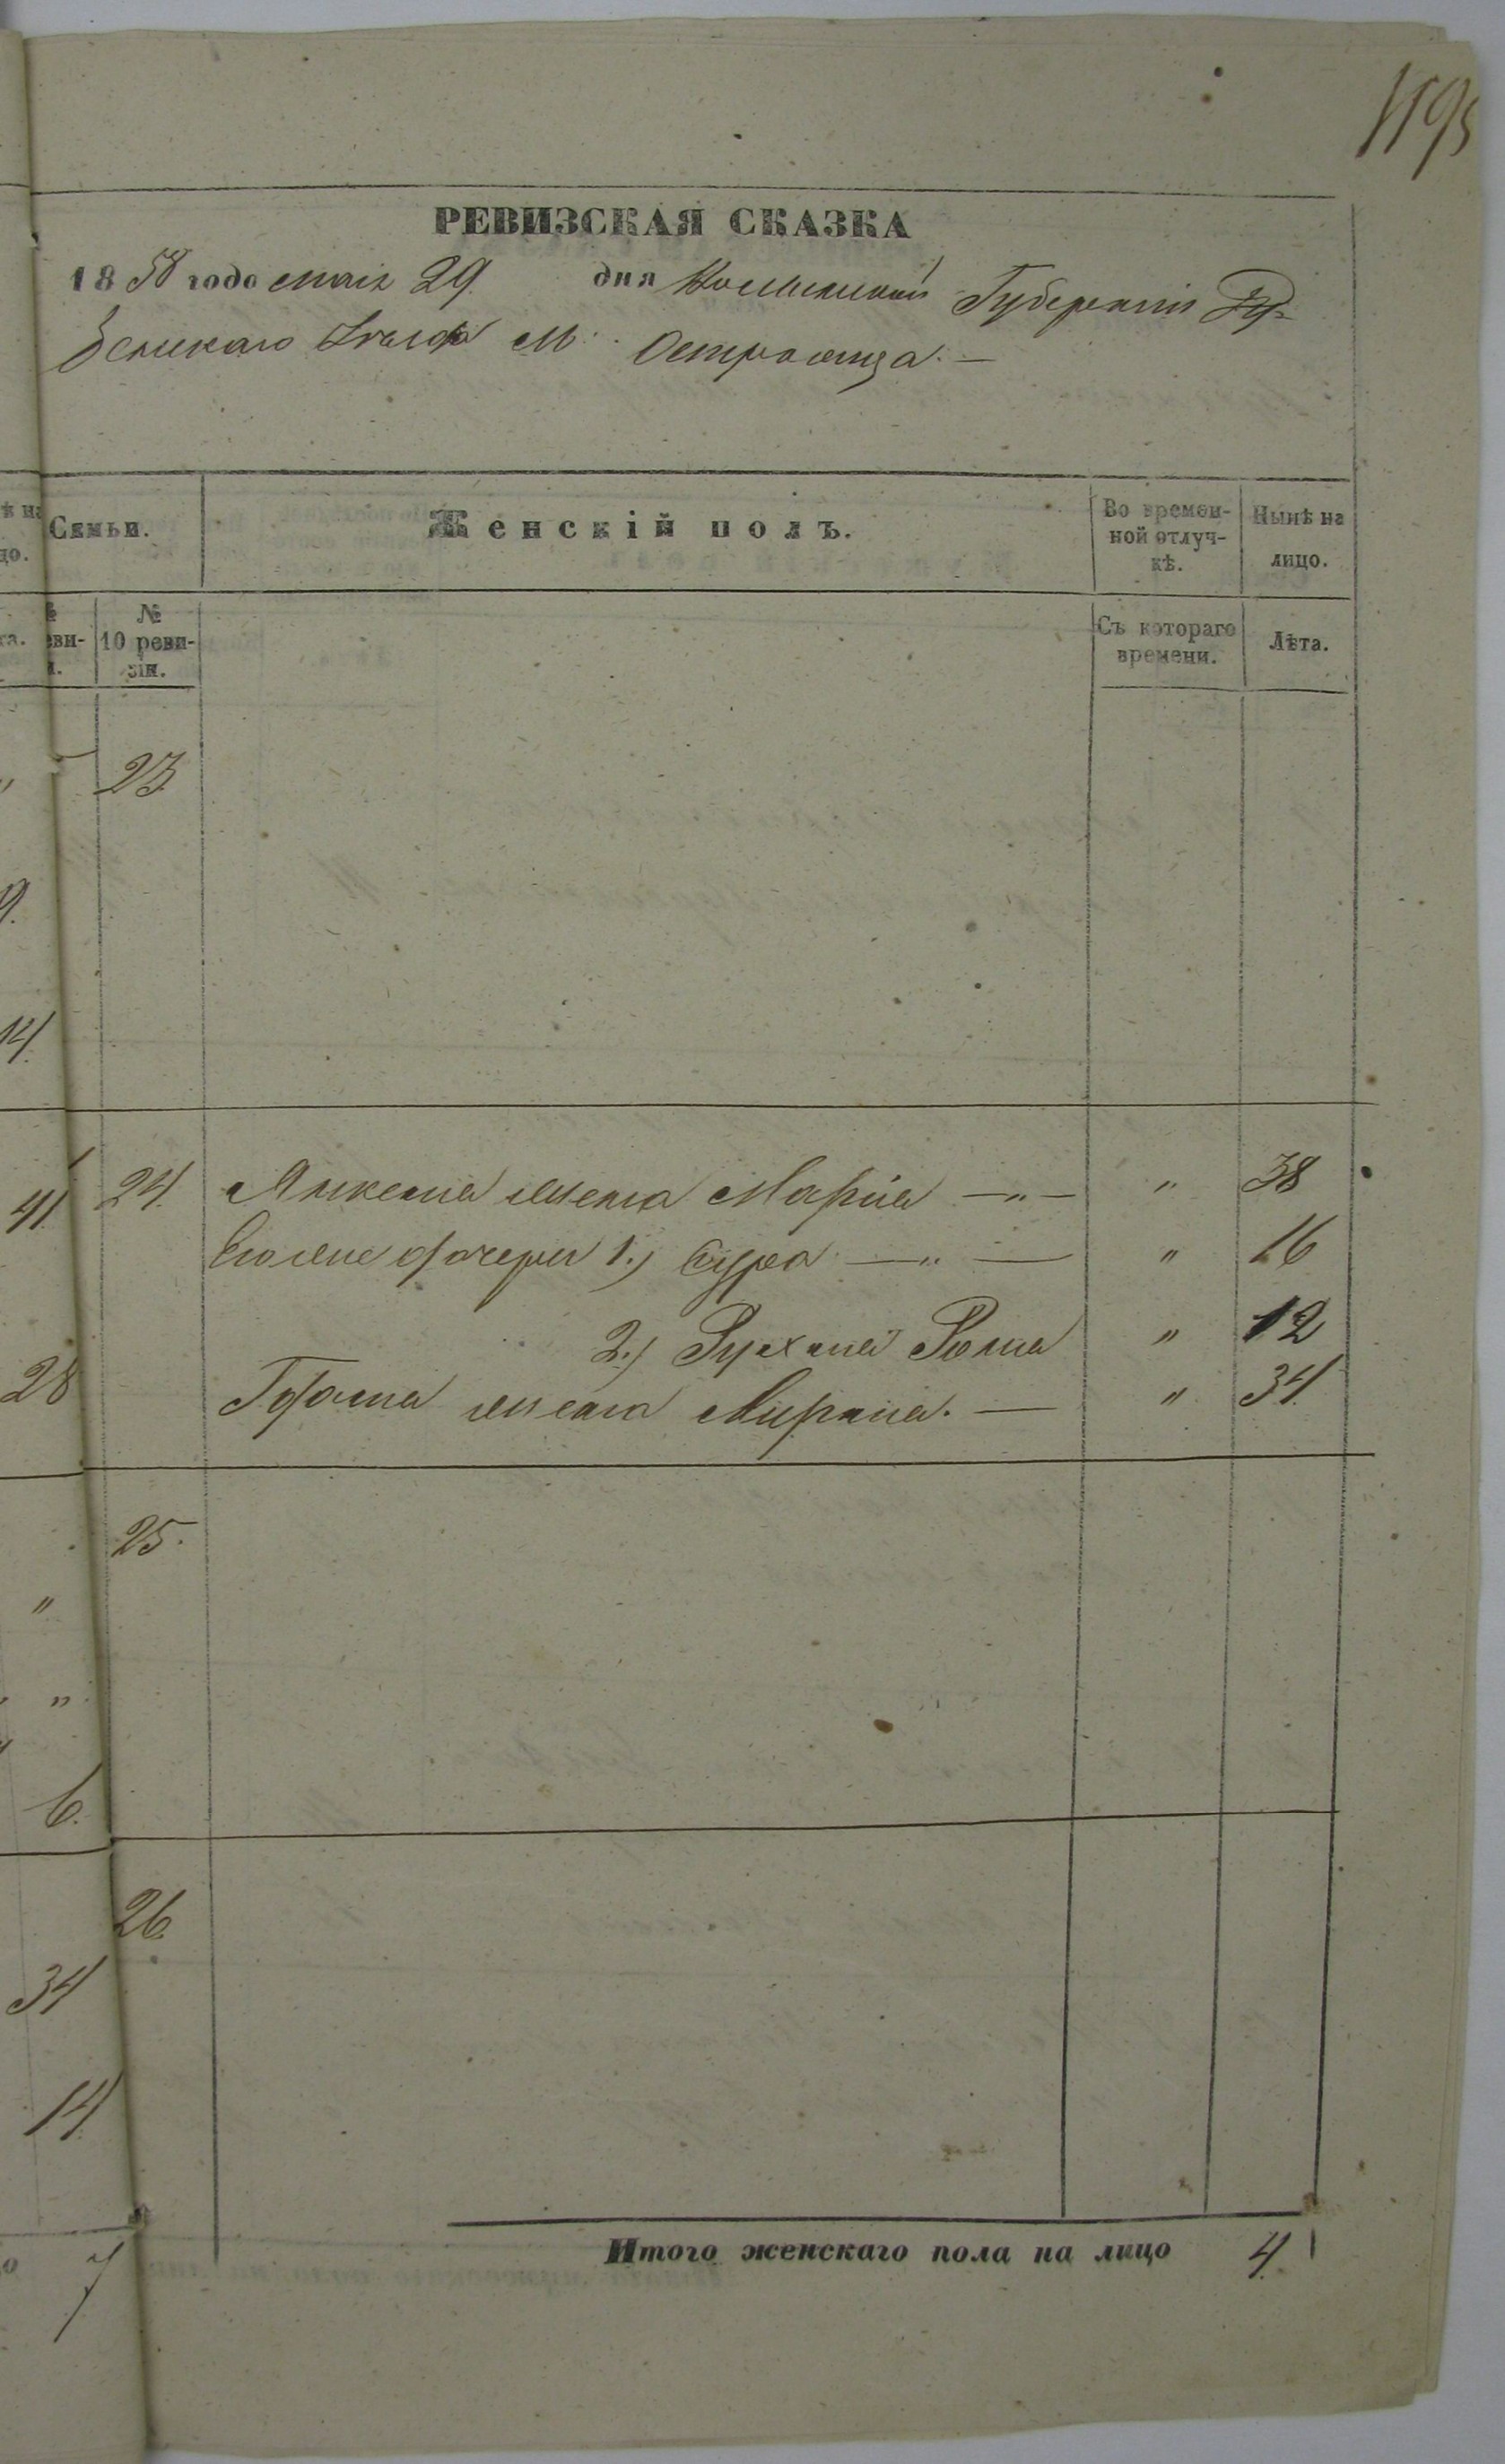 1195
РЕВИЗСКАЯ СКАЗКА
1858 года маія 29 дня Волынской Губерніи Ду-
бенскаго уѣзда м. Остроженца. —
Семьи.
Женскій полъ.
Во времен-
ной отлуч-
кѣ.
Нынѣ на
лицо.
№
10 реви-
зіи.
Съ котораго
времени.
Лѣта.
23
9.
14.
41. 24. жена Марія —„— „ 38
Его же дочери 1.) Сура —„— „ 16
2.) Рухля „ 12
28 жена — „ 34.
25.
„
„
6.
26.
34
14
Итого женскаго пола на лицо 4.
7